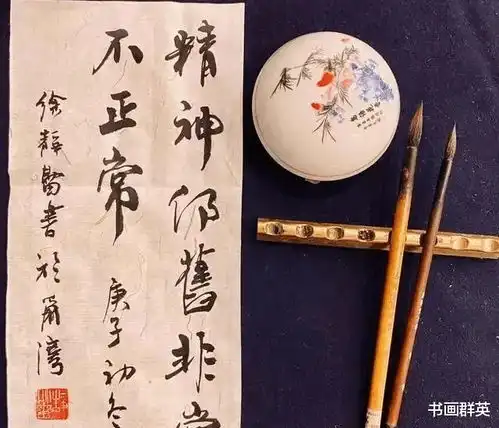 精神仍舊非常
不正常 庚子初冬
徐靜蕾書於灣
书画群英